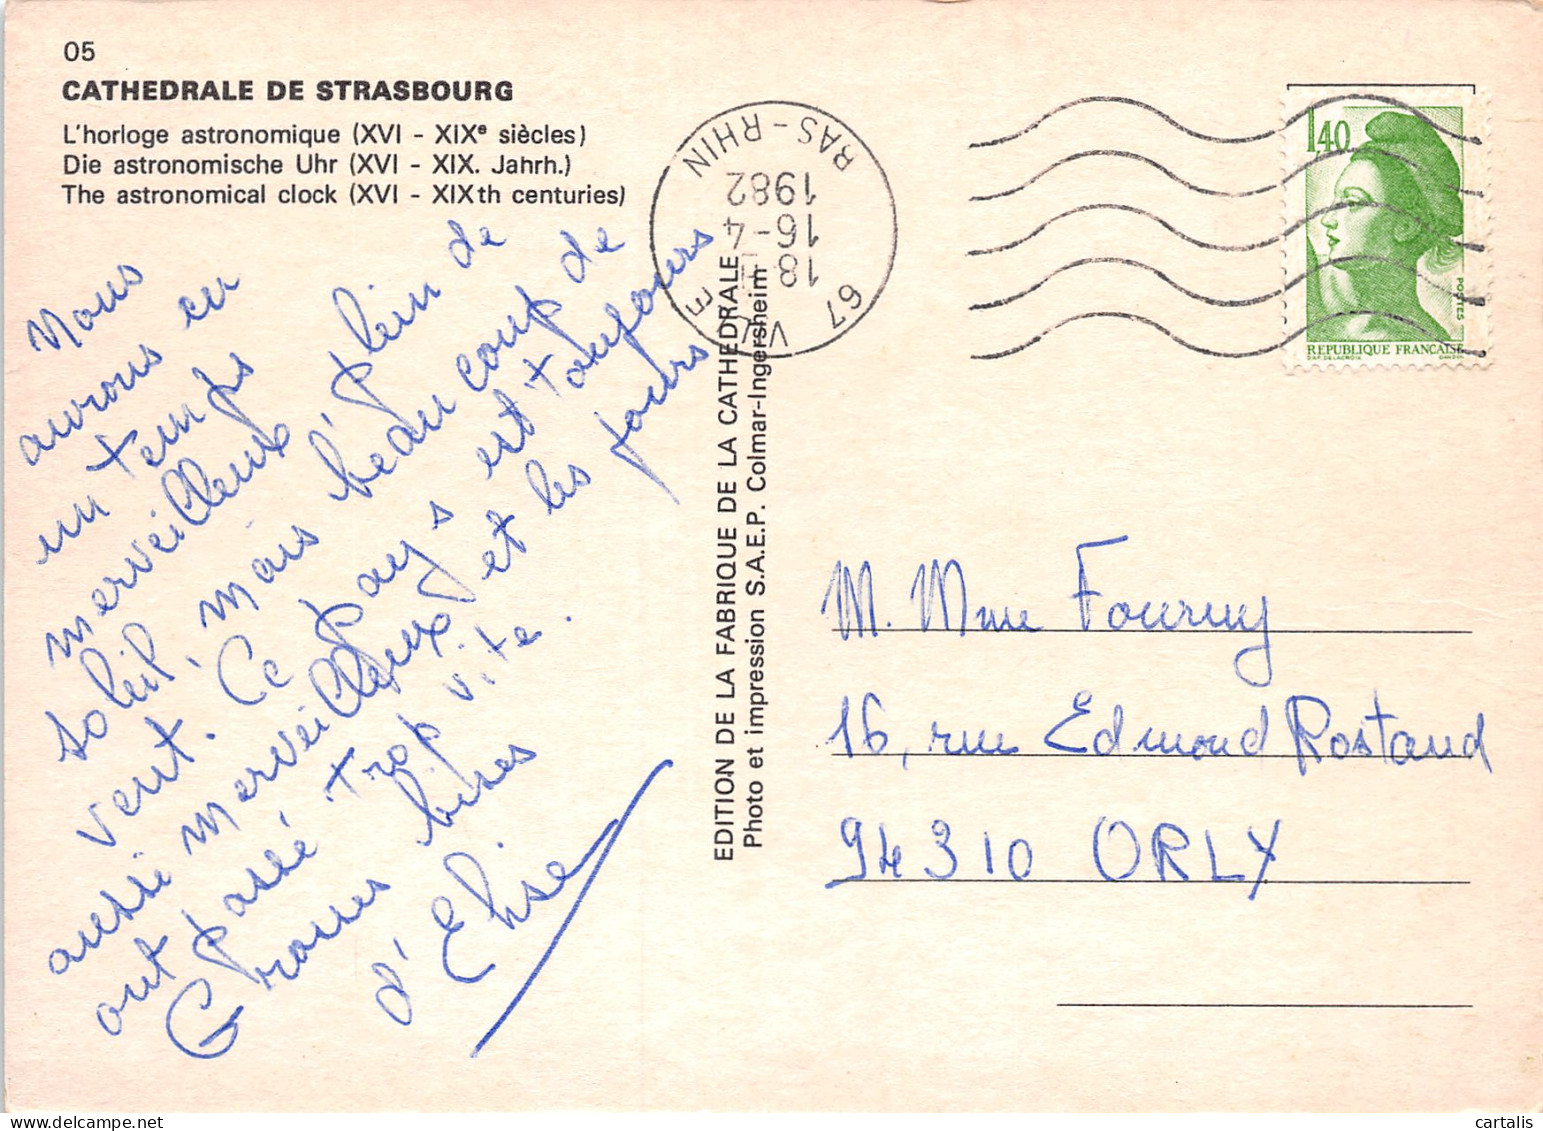 05
CATHEDRALE DE STRASBOURG
L'horloge astronomique (XVI - XIXe siècles)
Die astronomische Uhr (XVI - XIX. Jahrh.)
The astronomical clock (XVI - XIXth centuries)
Nous
avons eu
un temps
merveilleux plein de
soleil, mais beaucoup de
vent. Ce pays est toujours
aussi merveilleux. et les jours
ont passé trop vite.
Grosses bises
d'Elise
EDITION DE LA FABRIQUE DE LA CATHEDRALE
Photo et impression S.A.E.P. Colmar-Ingersheim
67
BAS-RHIN
18
16-4
1982
1,40
POSTES
REPUBLIQUE FRANCAISE
D'AP. DELACROIX
GANDON
M. Mme Fourny
16, rue Edmond Rostand
94310 ORLY
cartalis